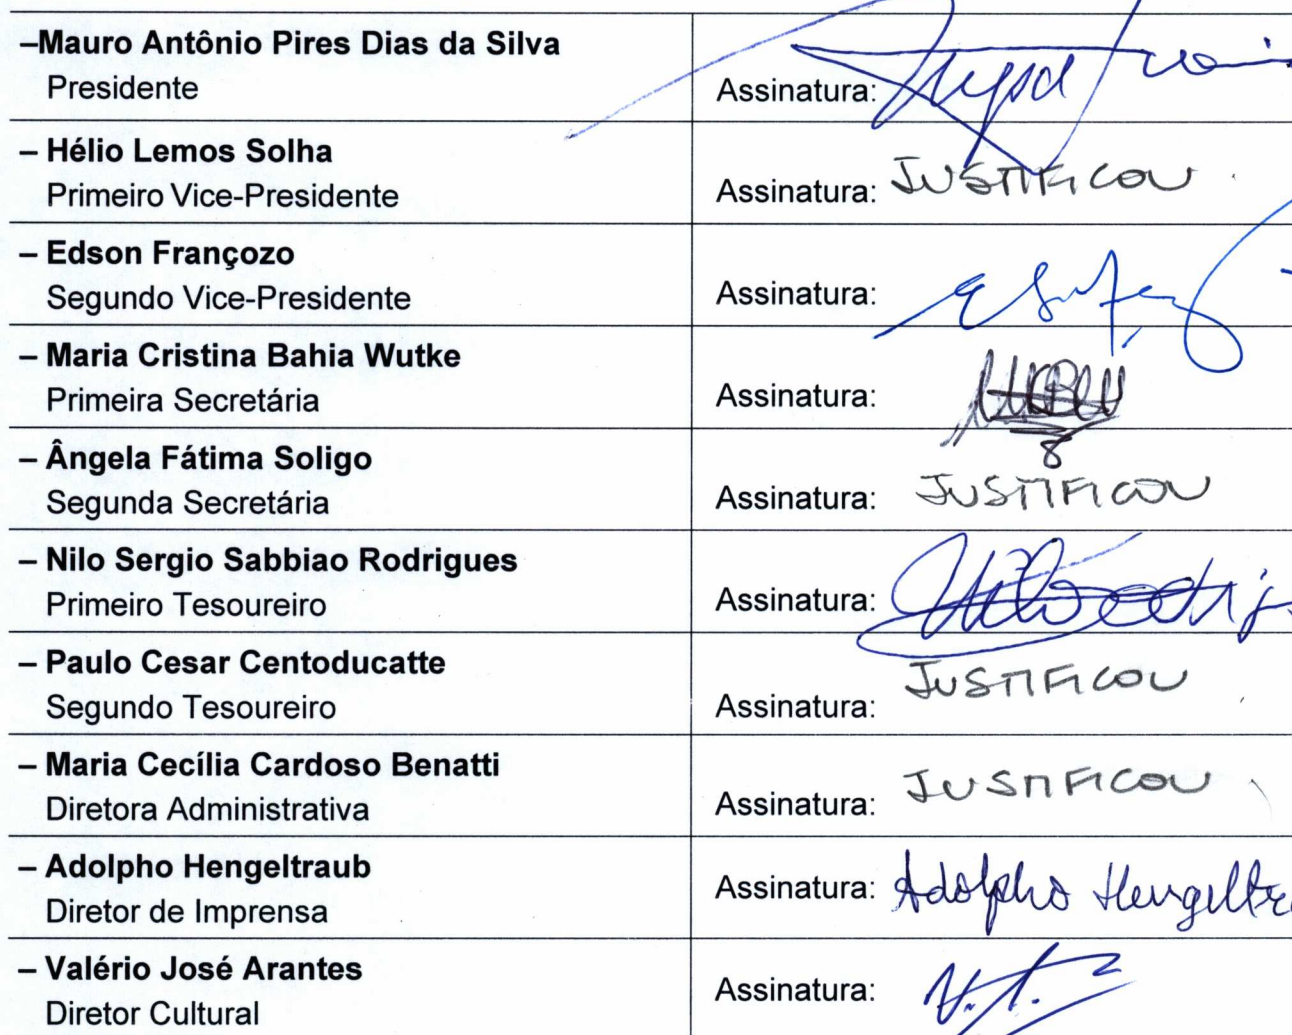 –Mauro Antônio Pires Dias da Silva
Presidente
Assinatura:
– Hélio Lemos Solha
Primeiro Vice-Presidente
Assinatura: JUSTIFICOU
– Edson Françozo
Segundo Vice-Presidente
Assinatura:
– Maria Cristina Bahia Wutke
Primeira Secretária
Assinatura:
– Ângela Fátima Soligo
Segunda Secretária
Assinatura: JUSTIFICOU
– Nilo Sergio Sabbiao Rodrigues
Primeiro Tesoureiro
Assinatura:
– Paulo Cesar Centoducatte
Segundo Tesoureiro
Assinatura: JUSTIFICOU
– Maria Cecília Cardoso Benatti
Diretora Administrativa
Assinatura: JUSTIFICOU
– Adolpho Hengeltraub
Diretor de Imprensa
Assinatura: Adolpho
– Valério José Arantes
Diretor Cultural
Assinatura: